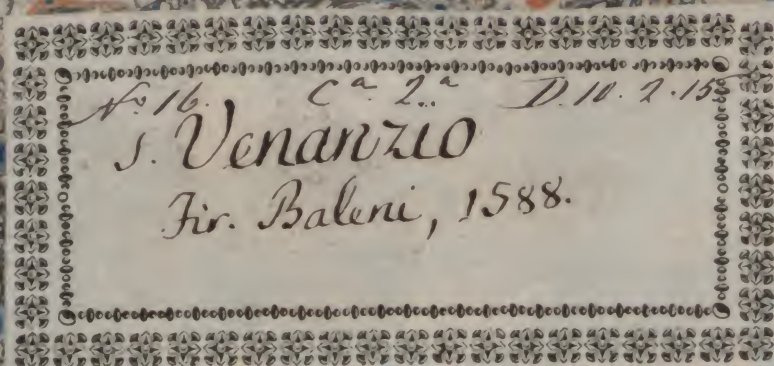 No. 16. Ca. 2.a D. 10. 2. 15
S. Venanzio
Fir. Baleni, 1588.